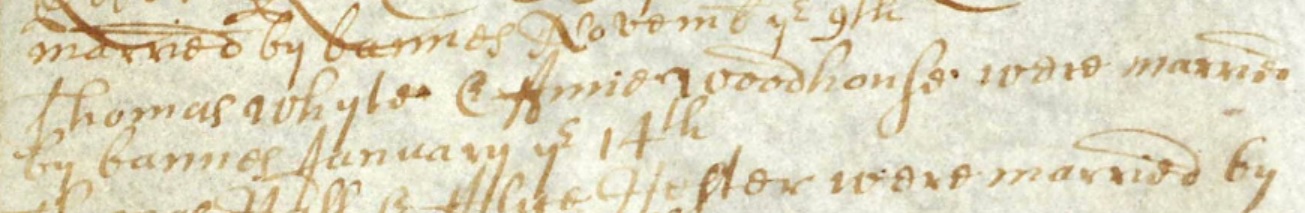 married by bannes Novemb yᵉ 9th
Thomas Whyte & Amie Woodhouse were married
by bannes January yᵉ 14th
Hall & Alice Hester were married by